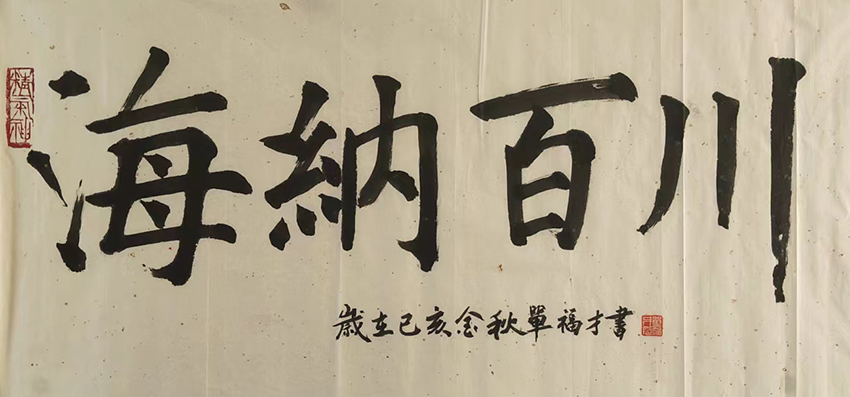 海納百川
歲在己亥金秋單福才書
精氣神